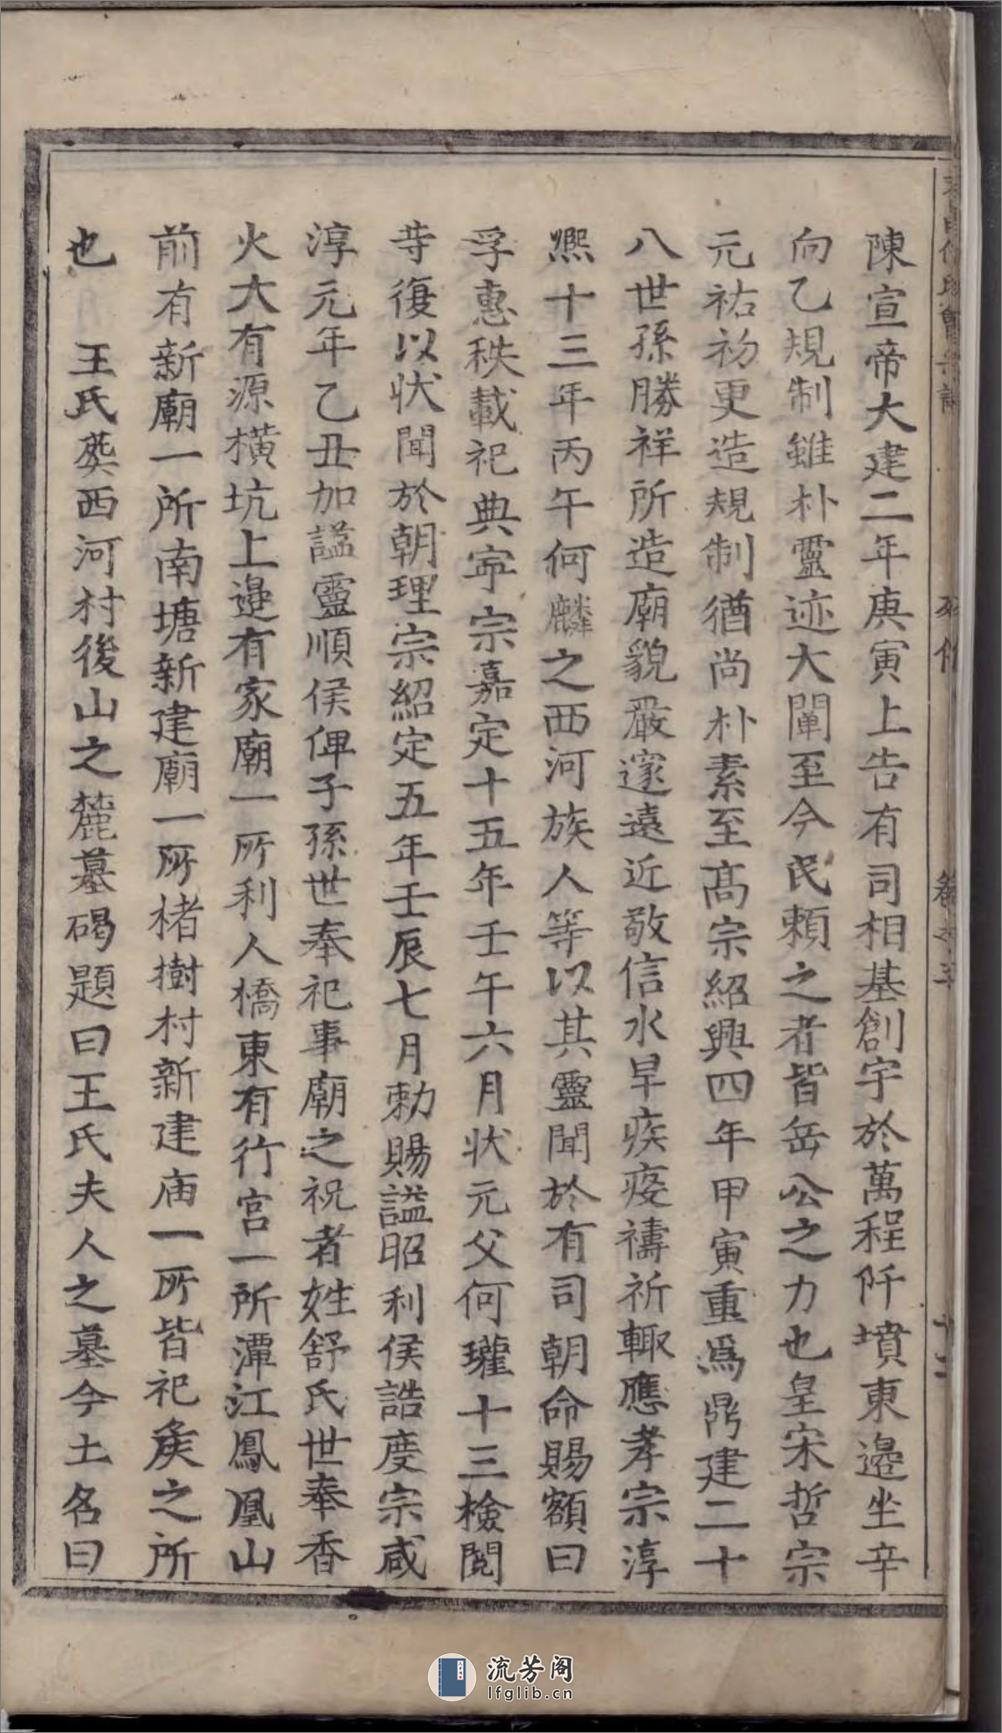 陳宣帝大建二年庚寅上告有司相基創宇於萬程阡墳東邉坐辛
向乙規制雖朴靈迹大闡至今民頼之者皆岳公之力也皇宋哲宗
元祐初更造規制猶尚朴素至髙宗紹興四年甲寅重爲鼎建二十
八世孫勝祥所造廟貌嚴邃遠近敬信水旱疾疫禱祈輙應孝宗淳
熈十三年丙午何麟之西河族人等以其靈聞於有司朝命賜額曰
孚惠秩載祀典寜宗嘉定十五年壬午六月状元父何瓘十三檢閲
寺復以状聞於朝理宗紹定五年壬辰七月勅賜謚昭利侯誥度宗咸
淳元年乙丑加謚靈順侯俾子孫世奉祀事廟之祝者姓舒氏世奉香
火大有源横坑上邉有家廟一所利人橋東有行宫一所潭江鳳凰山
前有新廟一所南塘新建廟一所楮樹村新建庙一所皆祀矦之所
也　王氏葬西河村後山之麓墓碣題曰王氏夫人之墓今土名曰
流芳阁
lfglib.cn